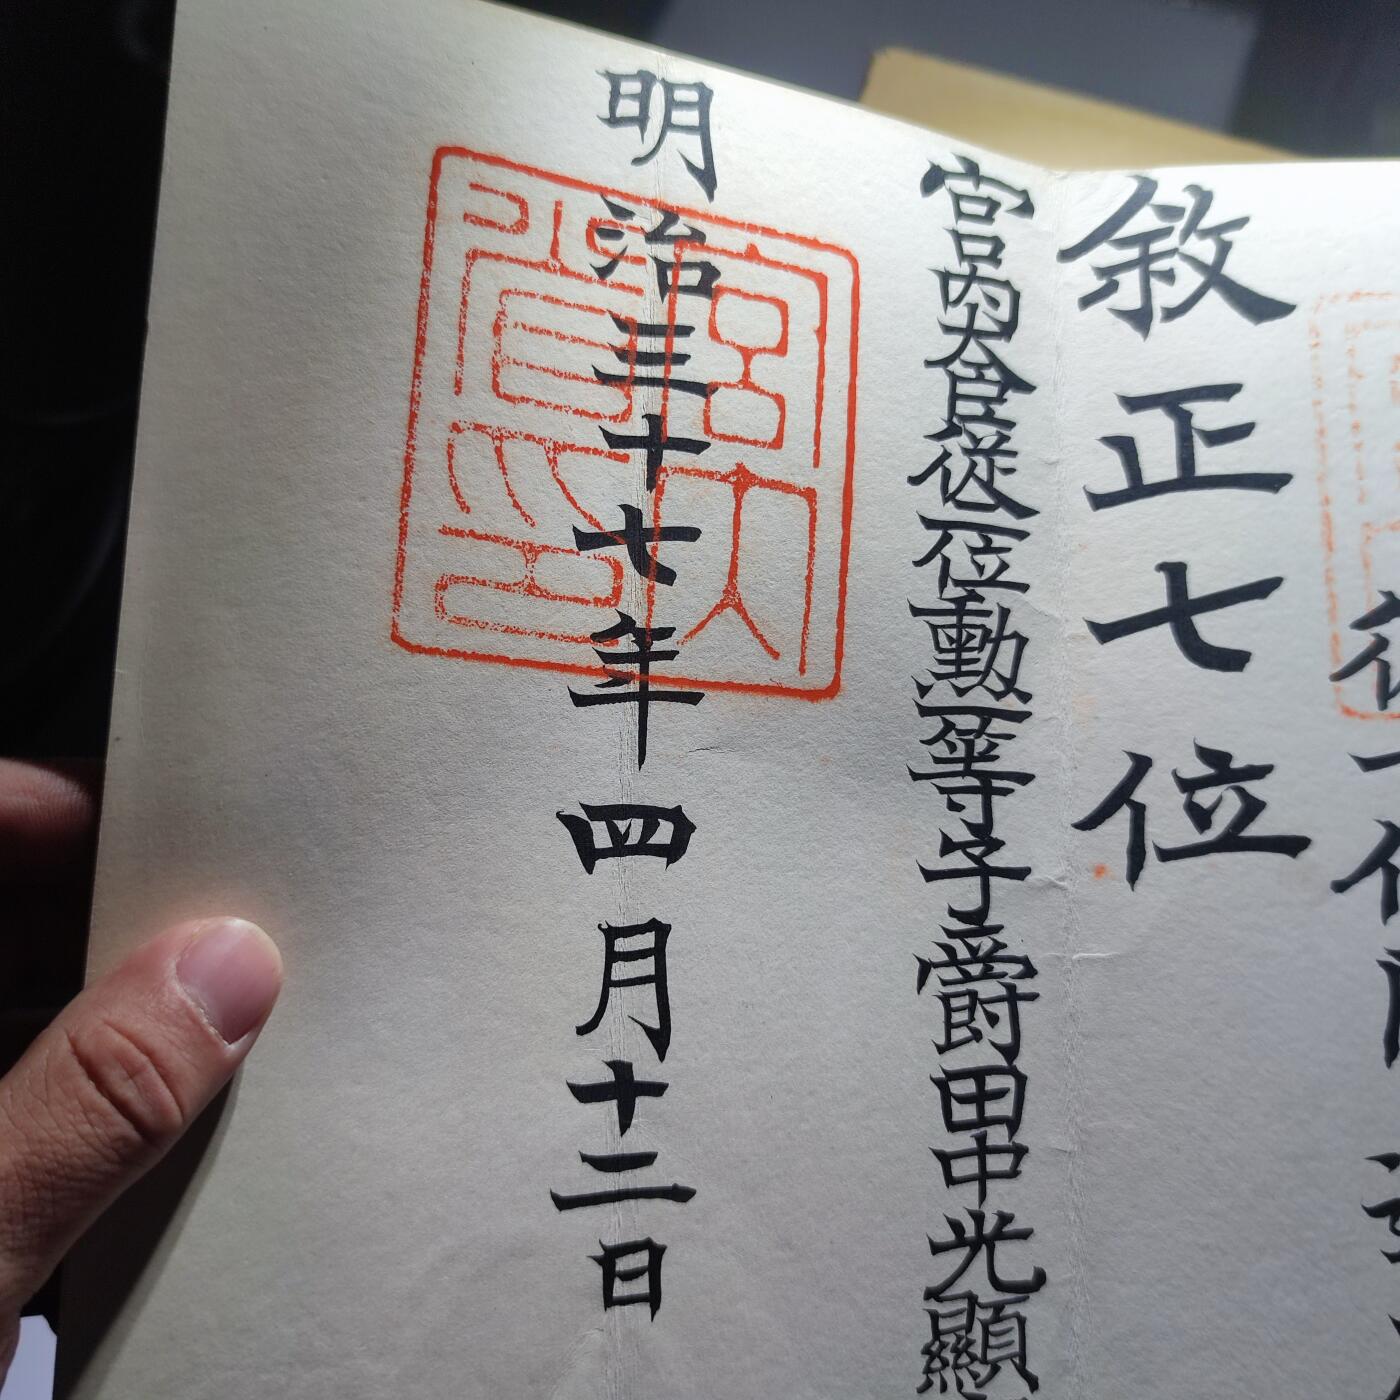 敘正七位
宮内大臣従二位勳一等子爵田中光顯
明治三十七年四月十二日
宮内大臣之印